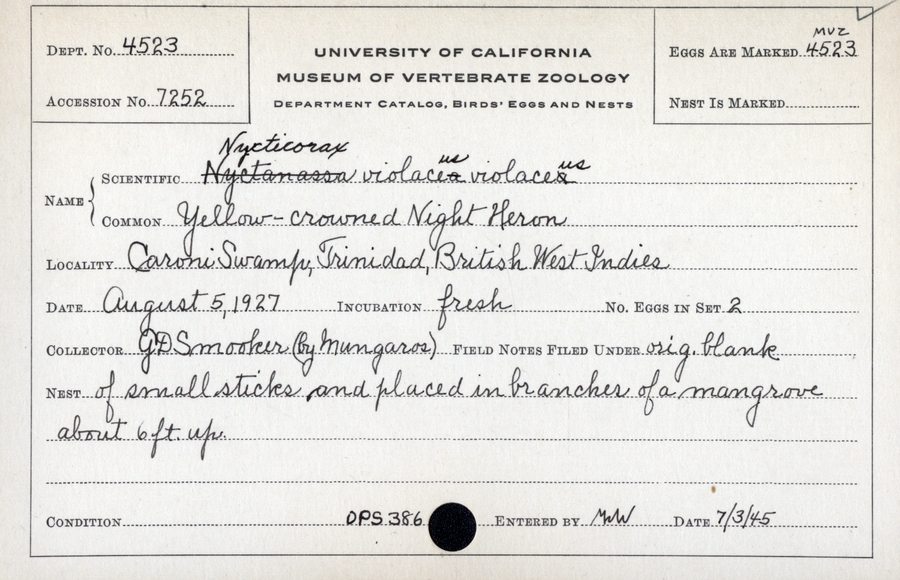 DEPT. NO. 4523
ACCESSION NO. 7252
UNIVERSITY OF CALIFORNIA
MUSEUM OF VERTEBRATE ZOOLOGY
DEPARTMENT CATALOG, BIRDS' EGGS AND NESTS
MVZ
EGGS ARE MARKED 4523
NEST IS MARKED
Nycticorax
us us
NAME
SCIENTIFIC Nyctanassa violacea violacea
COMMON Yellow-crowned Night Heron
LOCALITY Caroni Swamp, Trinidad, British West Indies
DATE August 5, 1927 INCUBATION fresh NO. EGGS IN SET 2
COLLECTOR GDSmooker (by Mungaros) FIELD NOTES FILED UNDER orig. blank
NEST of small sticks and placed in branches of a mangrove
about 6 ft. up.
CONDITION OPS 386 ENTERED BY DATE 7/3/45